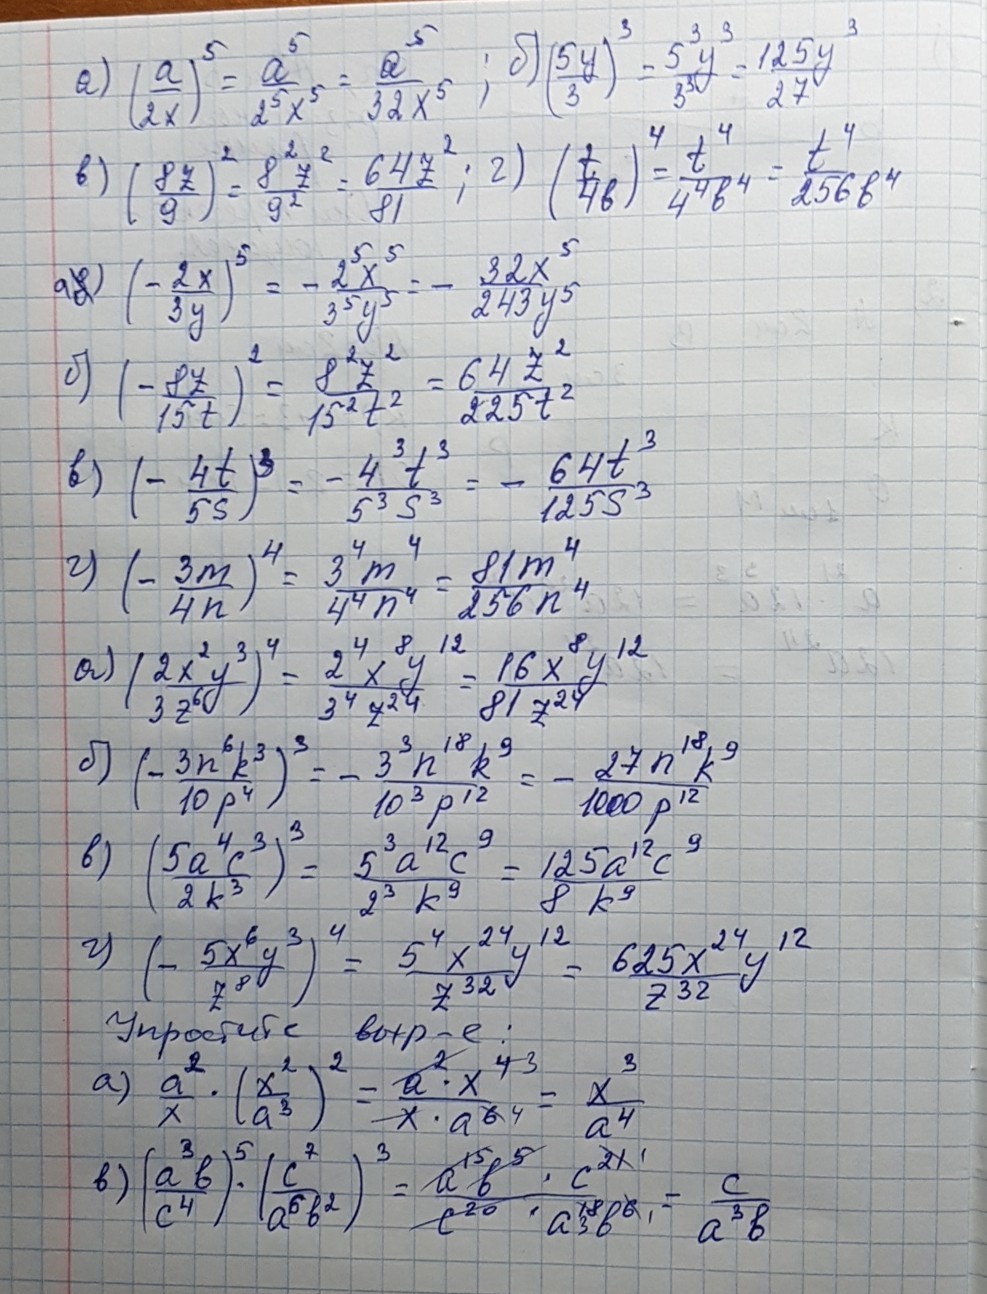 а) (a/2x)^5 = a^5/2^5x^5 = a^5/32x^5 ; б) (5y/3)^3 = 5^3y^3/3^3 = 125y^3/27
в) (8z/9)^2 = 8^2z^2/9^2 = 64z^2/81 ; г) (t/4b)^4 = t^4/4^4b^4 = t^4/256b^4
а) (-2x/3y)^5 = -2^5x^5/3^5y^5 = -32x^5/243y^5
б) (-8z/15t)^2 = 8^2z^2/15^2t^2 = 64z^2/225t^2
в) (-4t/5s)^3 = -4^3t^3/5^3s^3 = -64t^3/125s^3
г) (-3m/4n)^4 = 3^4m^4/4^4n^4 = 81m^4/256n^4
а) (2x^2y^3/3z^6)^4 = 2^4x^8y^12/3^4z^24 = 16x^8y^12/81z^24
б) (-3n^6k^3/10p^4)^3 = -3^3n^18k^9/10^3p^12 = -27n^18k^9/1000p^12
в) (5a^4c^3/2k^3)^3 = 5^3a^12c^9/2^3k^9 = 125a^12c^9/8k^9
г) (-5x^6y^3/z^8)^4 = 5^4x^24y^12/z^32 = 625x^24y^12/z^32
Упростите выр-е:
а) a^2/x · (x^2/a^3)^2 = a^2 · x^4 3/x · a^6 4 = x^3/a^4
в) (a^3b/c^4)^5 · (c^7/a^6b^2)^3 = a^15b^5 · c^21 1/c^20 · a^18 3 b^6 1 = c/a^3b